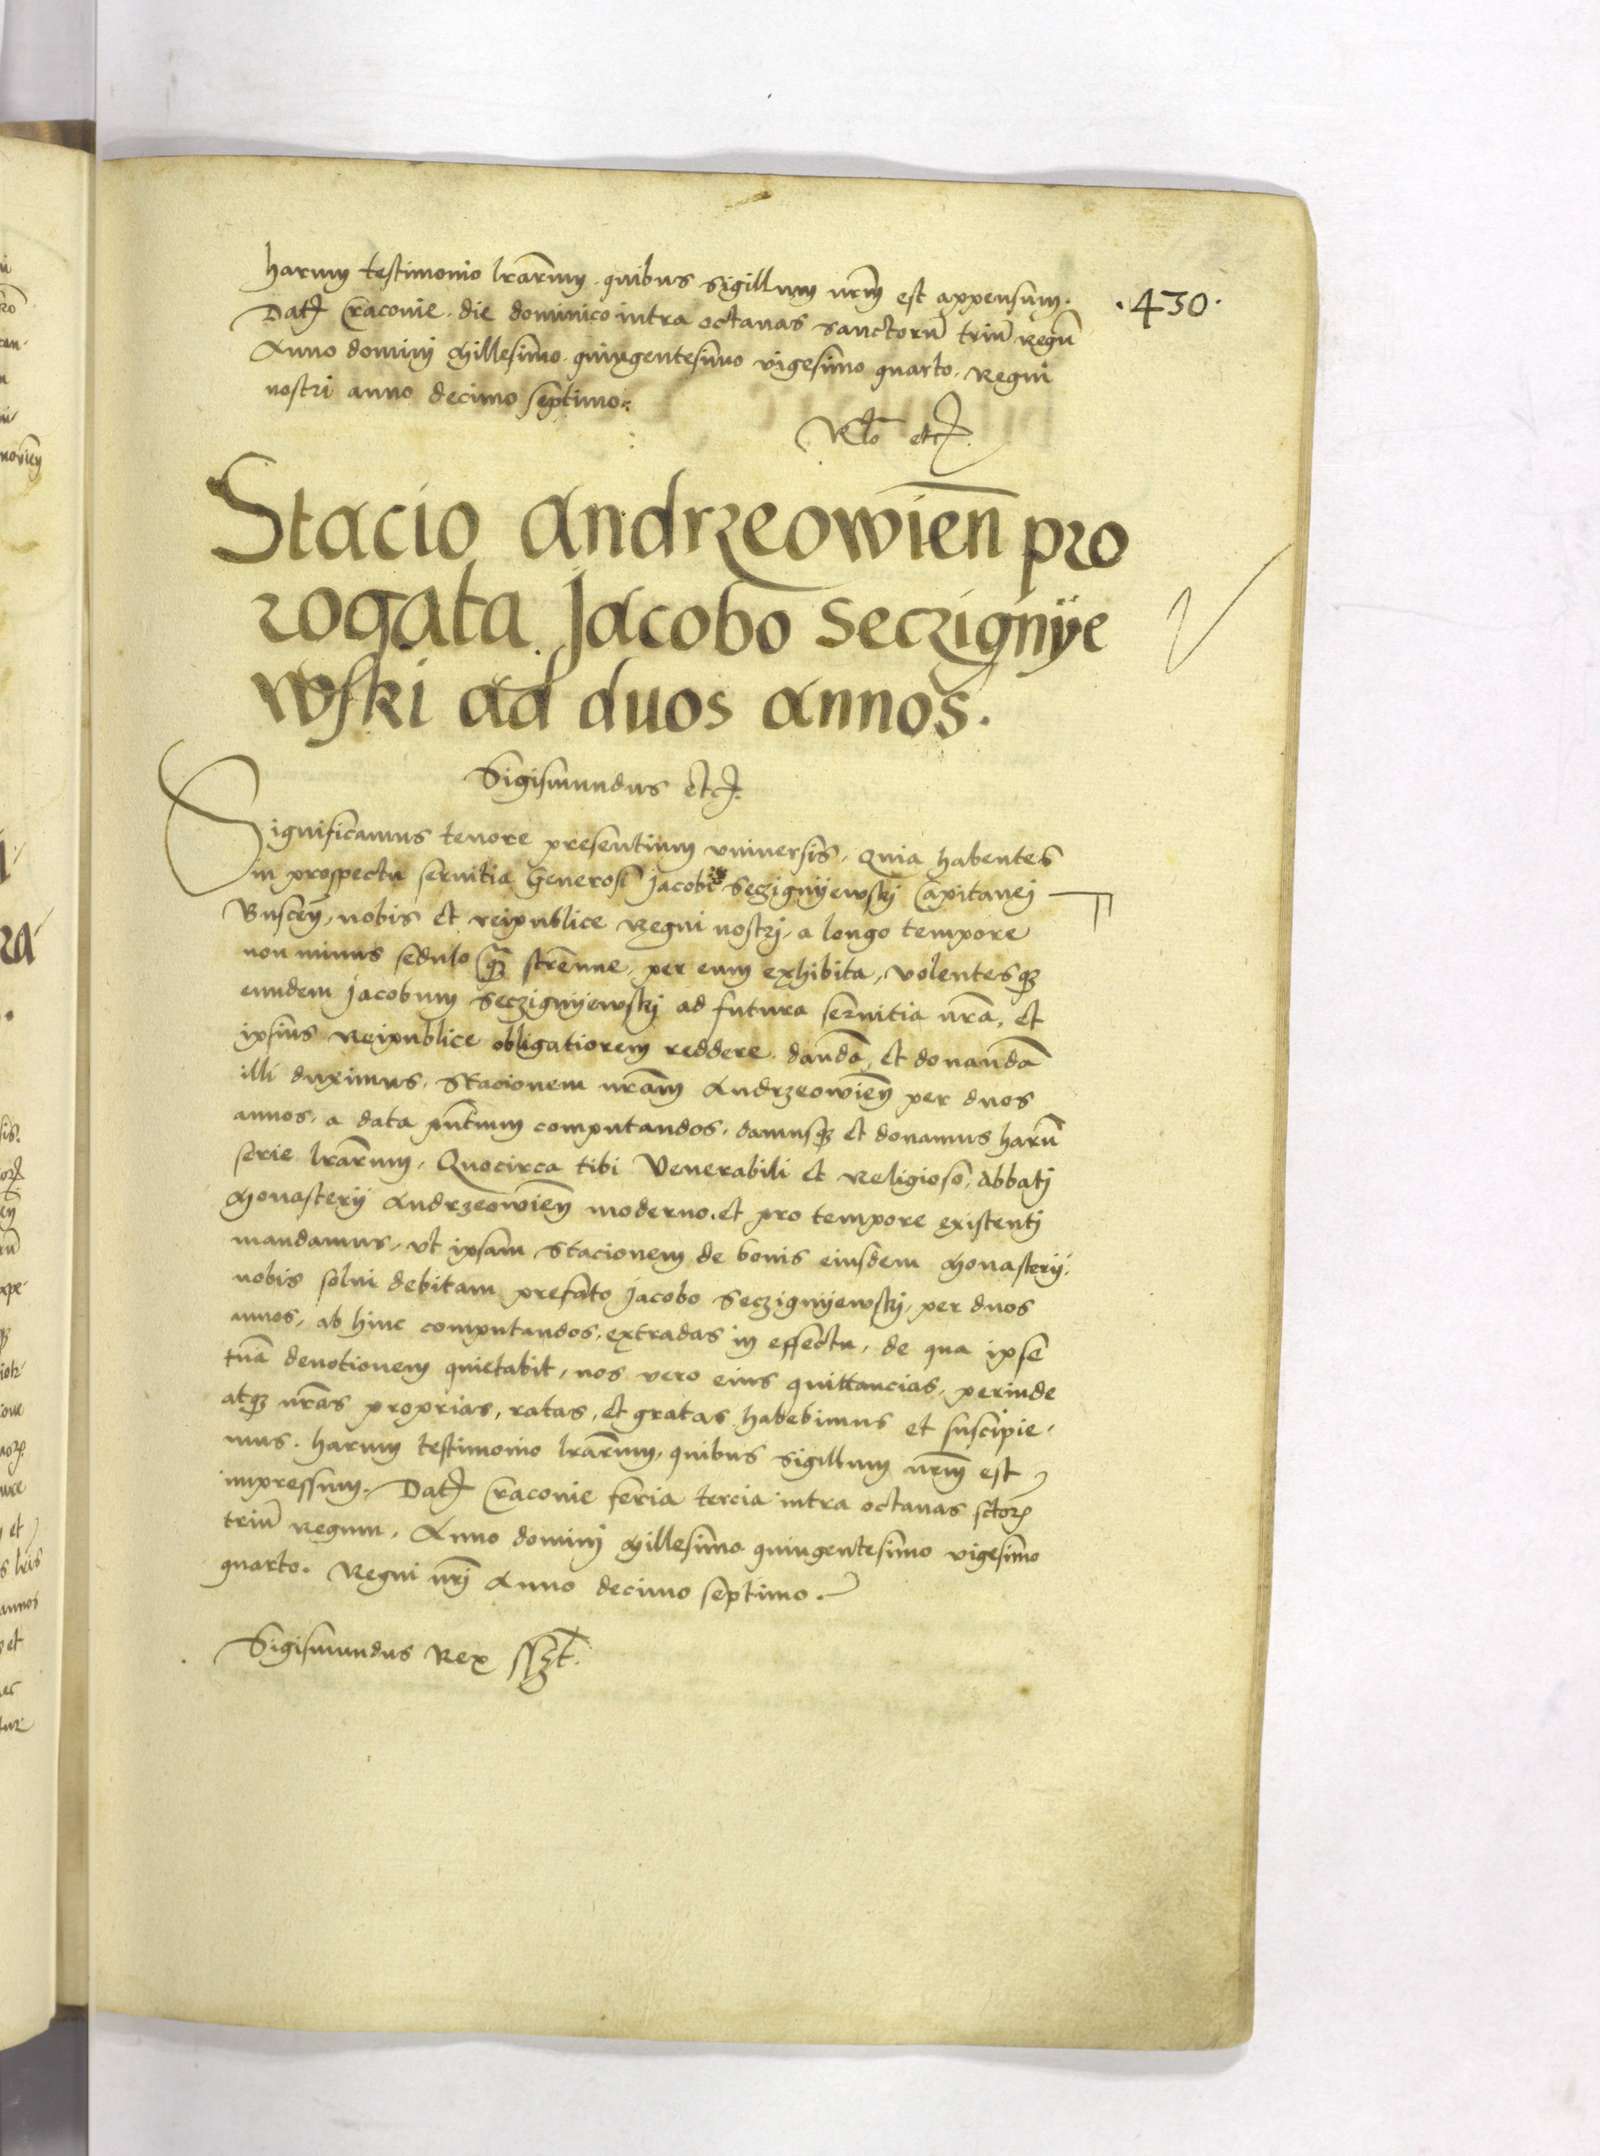 harum testimonio lrarum quibus sigillum nrm est appensum.
·430·
Dat Cracovie die dominico intra octavas sanctoru triu regu
Anno domini Millesimo quingentesimo vigesimo quarto. Regni
nostri anno decimo septimo.
Rlo etc.
Stacio Andrzeowien pro
rogata Jacobo Seczignÿe
wski ad duos annos.
Sigismundus etc.
Significamus tenore presentium universis, Quia habentes
in prospectu servitia Generosi Jacobi Seczignÿewskj Capitanej
Buscen, nobis et reipublice Regni nostrj, a longo tempore
non minus sedulo q strenue, per eum exhibita, volentesq
eundem Jacobum Seczignÿewskj ad futura servitia nra, et
ipsius Reipublice obligatiorem reddere, danda, et donanda
illi duximus, Stacionem nram Andrzeowien per duos
annos, a data pntium computandos, damusq et donamus haru
serie lrarum, Quocirca tibi Venerabili et Religioso, Abbatj
Monasterij Andrzeowien moderno, et pro tempore existentj
mandamus, ut ipsam Stacionem de bonis eiusdem Monasterij,
nobis solvi debitam prefato Jacobo Seczignÿewskj, per duos
annos, ab hinc computandos, extradas in effectu, de qua ipse
tua devotionem quietabit, nos vero eius quittancias, perinde
atq nras proprias, ratas, et gratas habebimus et suscipie-
mus. Harum testimonio lrarum, quibus Sigillum nrm est
impressum. Dat Cracovie feria tercia intra octavas sctor
triu Regum, Anno dominj Millesimo quingentesimo vigesimo
quarto. Regni nrj Anno decimo septimo.
Sigismundus Rex sszt.